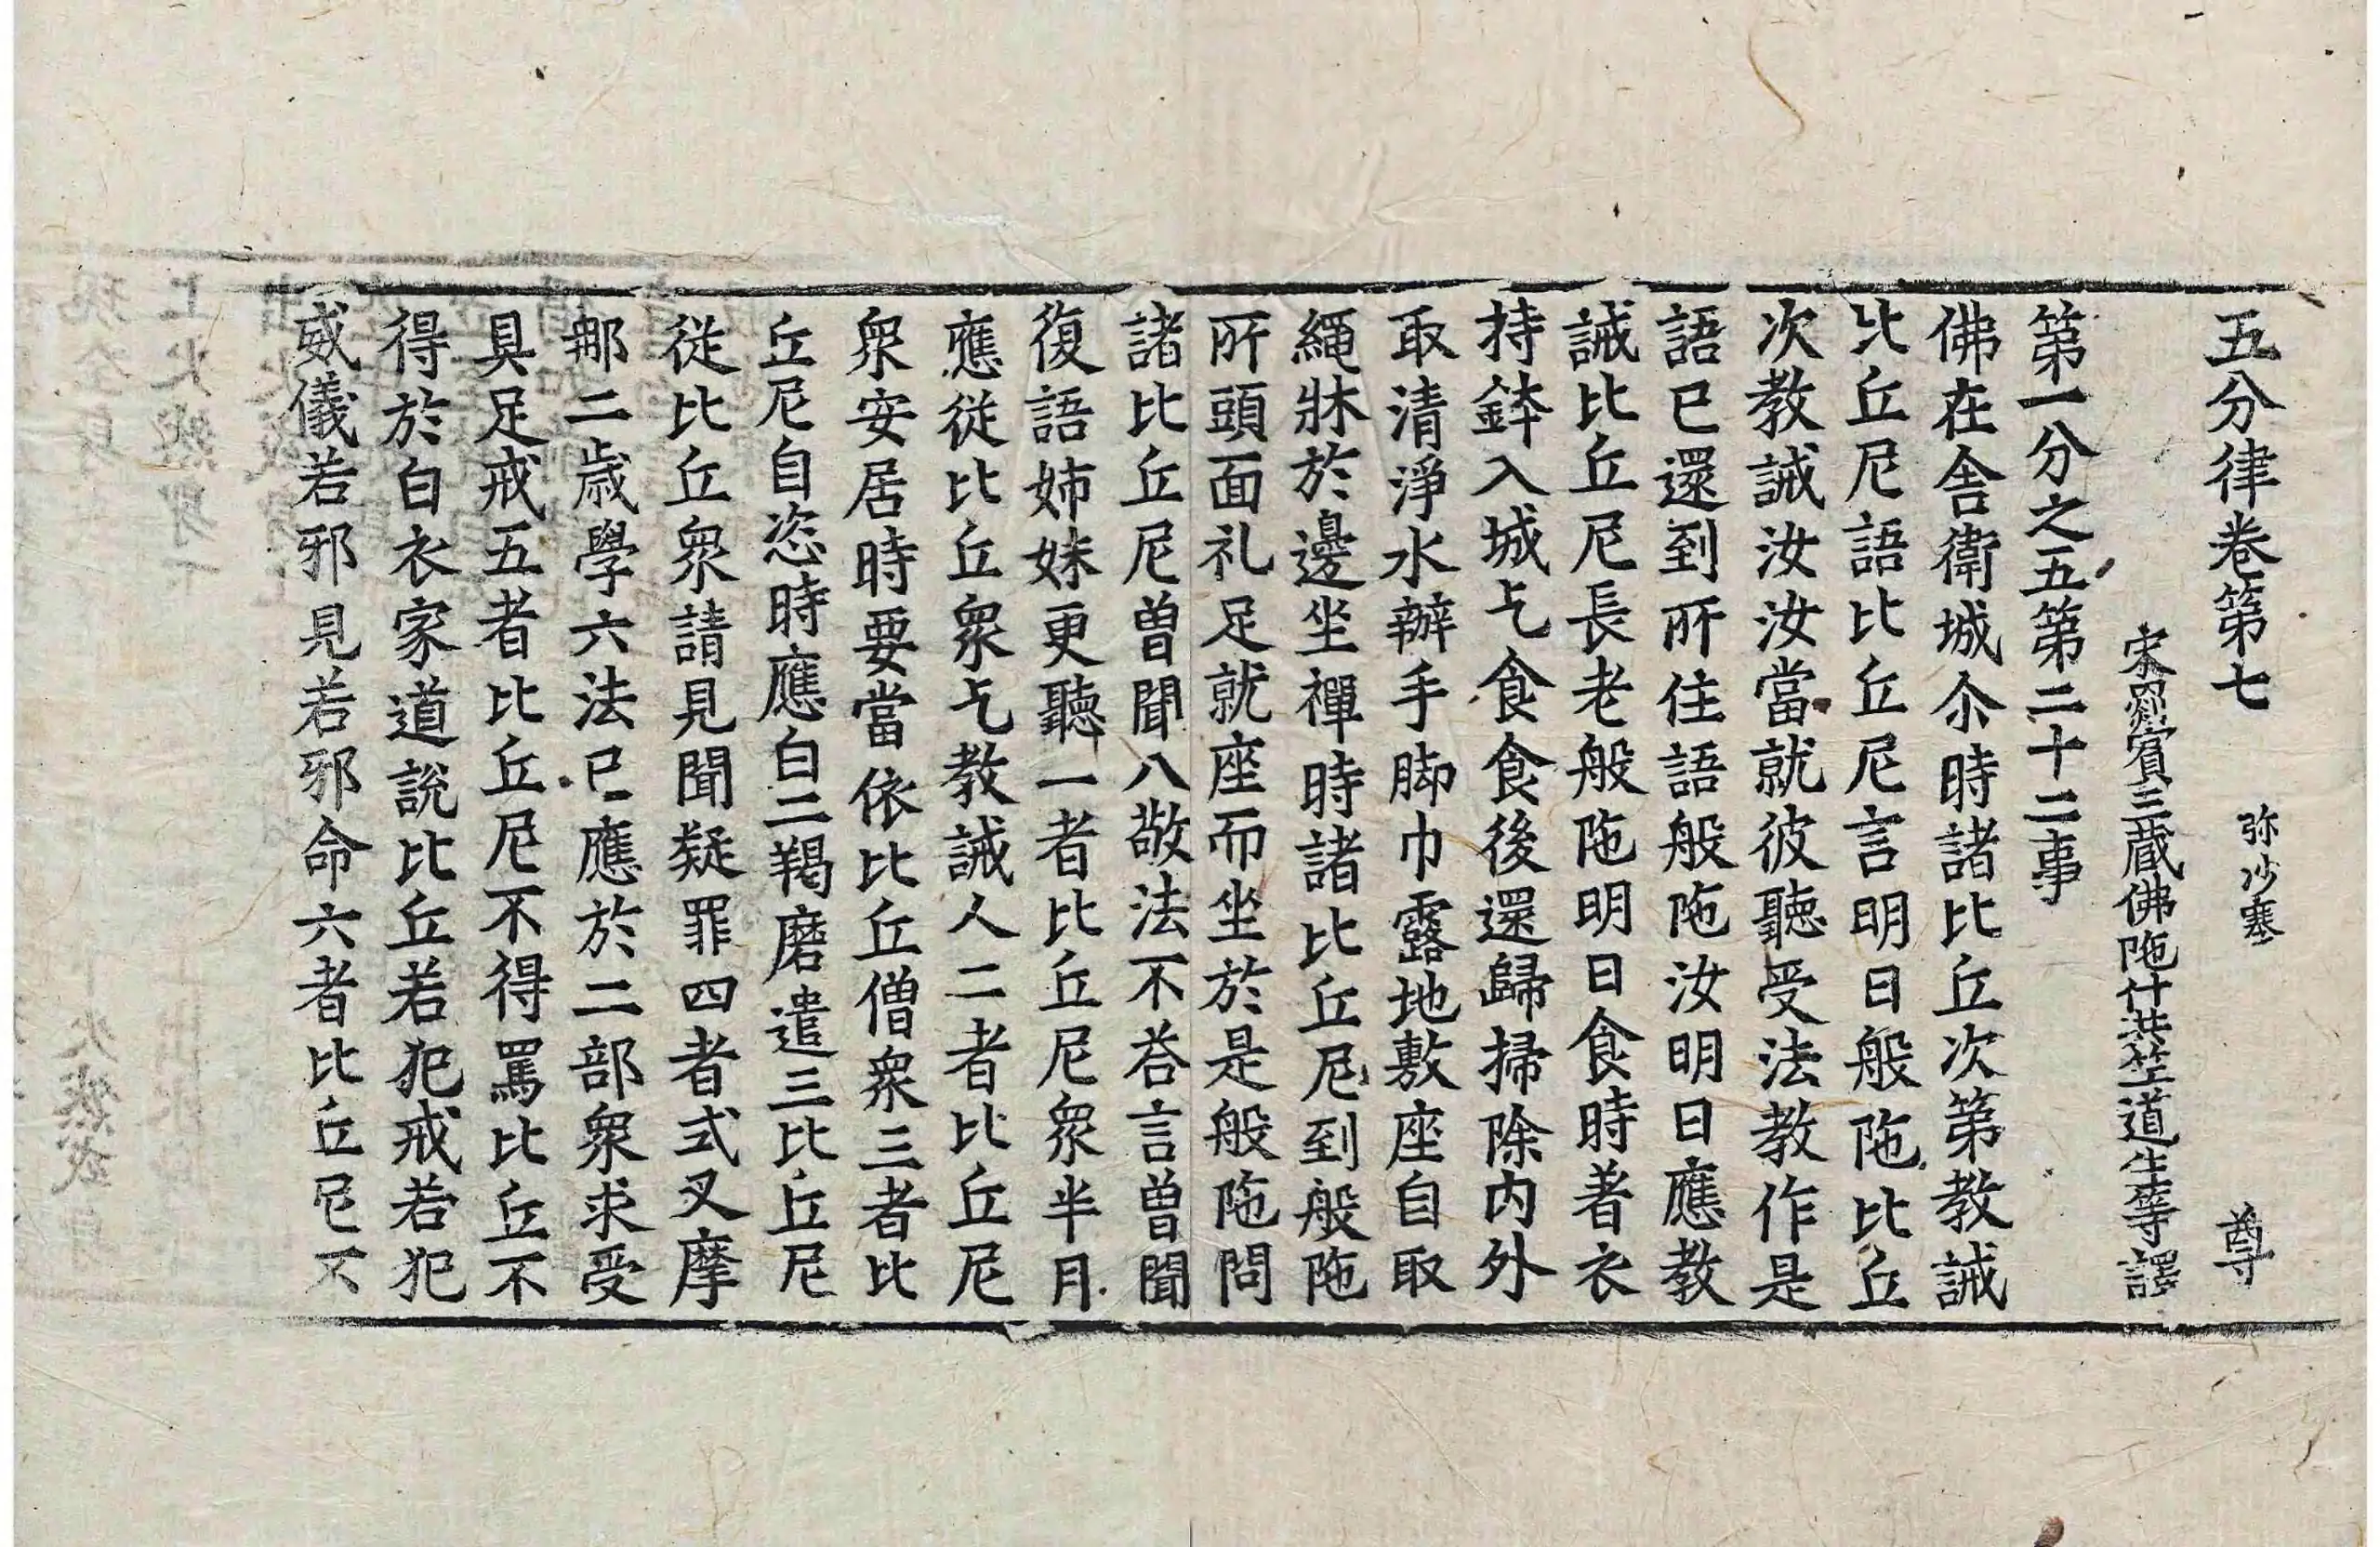 五分律卷第七 弥沙塞 尊
宋罽賓三藏佛陁什共竺道生等譯
第一分之五第二十二事
佛在舍衛城尒時諸比丘次第教誡
比丘尼語比丘尼言明日般陁比丘
次教誡汝汝當就彼聽受法教作是
語已還到所住語般陁汝明日應教
誡比丘尼長老般陁明日食時著衣
持鉢入城乞食食後還歸掃除內外
取清淨水辦手脚巾露地敷座自取
繩牀於邊坐禪時諸比丘尼到般陁
所頭面礼足就座而坐於是般陁問
諸比丘尼曾聞八敬法不荅言曾聞
復語姊妹更聽一者比丘尼衆半月
應從比丘衆乞教誡人二者比丘尼
衆安居時要當依比丘僧衆三者比
丘尼自恣時應白二羯磨遣三比丘尼
從比丘衆請見聞疑罪四者式叉摩
那二歲學六法已應於二部衆求受
具足戒五者比丘尼不得罵比丘不
得於白衣家道說比丘若犯戒若犯
威儀若邪見若邪命六者比丘尼不